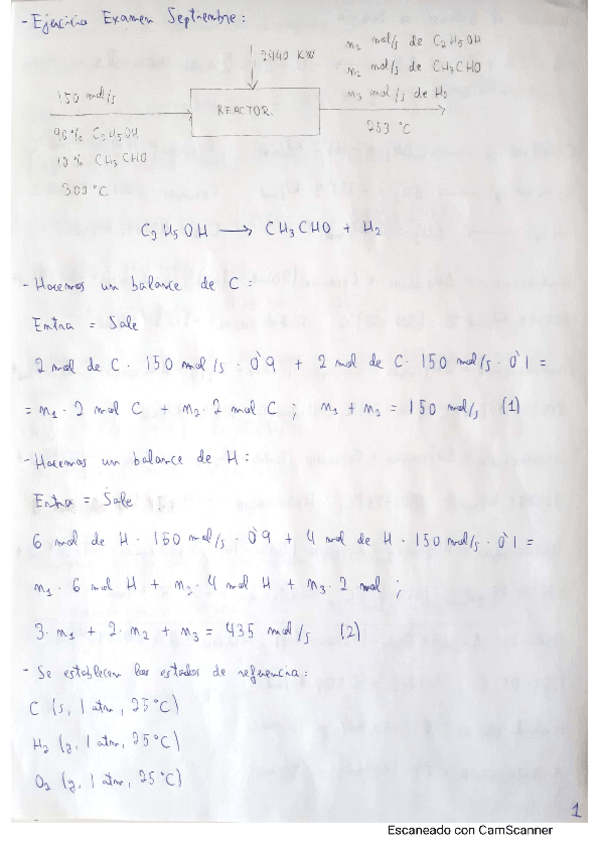 - Ejercicio Examen Septiembre:
150 mol/s
90% C2H5OH
10% CH3CHO
300°C
KW
REACTOR
n1 mol/s de C2H5OH
n2 mol/s de CH3CHO
n3 mol/s de H2
253 °C
C2H5OH → CH3CHO + H2
- Hacemos un balance de C:
Entra = Sale
2 mol de C · 150 mol/s · 0'9 + 2 mol de C · 150 mol/s · 0'1 =
= n1 · 2 mol C + n2 · 2 mol C ; n1 + n2 = 150 mol/s (1)
- Hacemos un balance de H:
Entra = Sale
6 mol de H · 150 mol/s · 0'9 + 4 mol de H · 150 mol/s · 0'1 =
n1 · 6 mol H + n2 · 4 mol H + n3 · 2 mol ;
3 · n1 + 2 · n2 + n3 = 435 mol/s (2)
- Se establecen los estados de referencia:
C (s, 1 atm, 25°C)
H2 (g, 1 atm, 25°C)
O2 (g, 1 atm, 25°C)
1
Escaneado con CamScanner